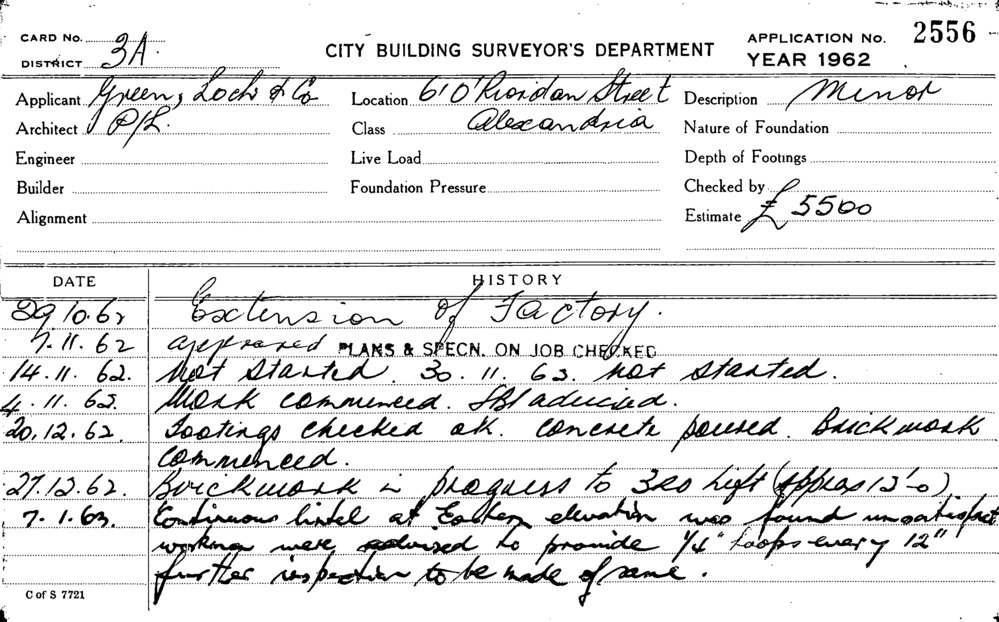 CARD No.
DISTRICT 3A.
CITY BUILDING SURVEYOR'S DEPARTMENT
APPLICATION No. 2556
YEAR 1962
Applicant Green, Loch & Co
Location 6 O'Riordan Street
Description Minor
Architect P/L.
Class Alexandria
Nature of Foundation
Engineer
Live Load
Depth of Footings
Builder
Foundation Pressure
Checked by
Alignment
Estimate £ 5500
DATE HISTORY
29.10.62 Extension of Factory.
7.11.62 approved PLANS & SPECN. ON JOB CHECKED
14.11.62. Not started. 30.11.62. not started.
4.11.62. Work commenced. advised.
20.12.62. Footings checked ok. concrete poured. Brickwork
commenced.
27.12.62. Brickwork in progress to 3rd lift (approx 12'-0)
7.1.63. Continuous lintel at Eastern elevation was found unsatisfact
working were advised to provide 1/4" loops every 12"
further inspection to be made of same.
C of S 7721